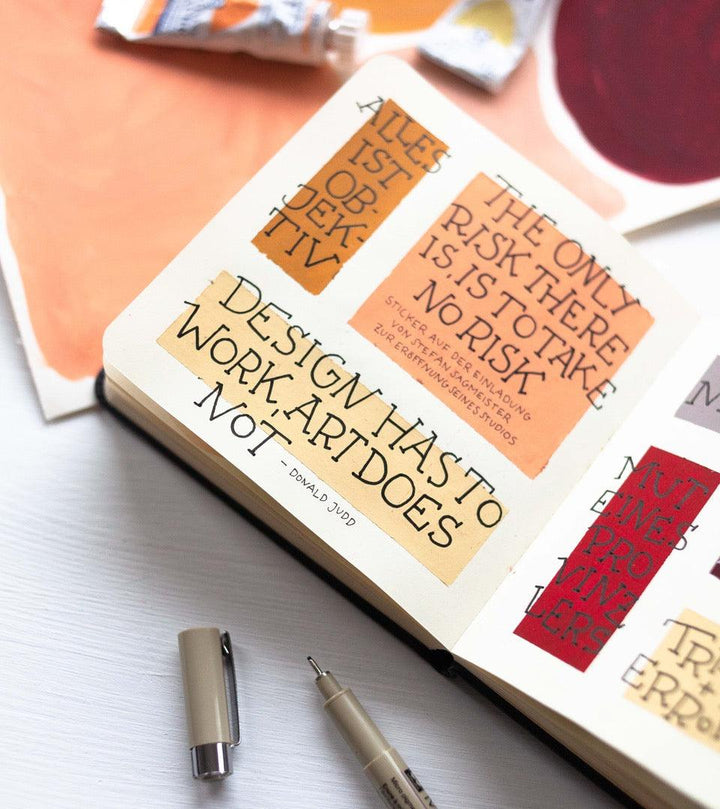 ALLES
IST
OB-
JEK-
TIV
THE ONLY
RISK THERE
IS, IS TO TAKE
NO RISK
STICKER AUF DER EINLADUNG
VON STEFAN SAGMEISTER
ZUR ERÖFFNUNG SEINES STUDIOS
DESIGN HAS TO
WORK, ART DOES
NOT
– DONALD JUDD
MUT
EINES
PRO
VINZ
LERS
+
ERROR